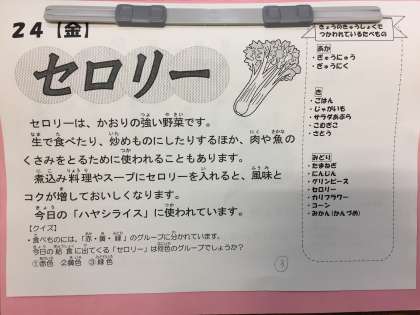 ２４【金】
セロリー
セロリーは、かおりの強い野菜です。
生で食べたり、炒めものにしたりするほか、肉や魚の
くさみをとるために使われることもあります。
煮込み料理やスープにセロリーを入れると、風味と
コクが増しておいしくなります。
今日の「ハヤシライス」に使われています。
【クイズ】
・食べものには、「赤・黄・緑」のグループに分かれています。
今日の給食に出てくる「セロリー」は何色のグループでしょうか？
①赤色 ②黄色 ③緑色
③
きょうのきゅうしょくで
つかわれているたべもの
あか
・ぎゅうにゅう
・ぎゅうにく
き
・ごはん
・じゃがいも
・サラダあぶら
・こむぎこ
・さとう
みどり
・たまねぎ
・にんじん
・グリンピース
・セロリー
・カリフラワー
・コーン
・みかん(かんづめ)